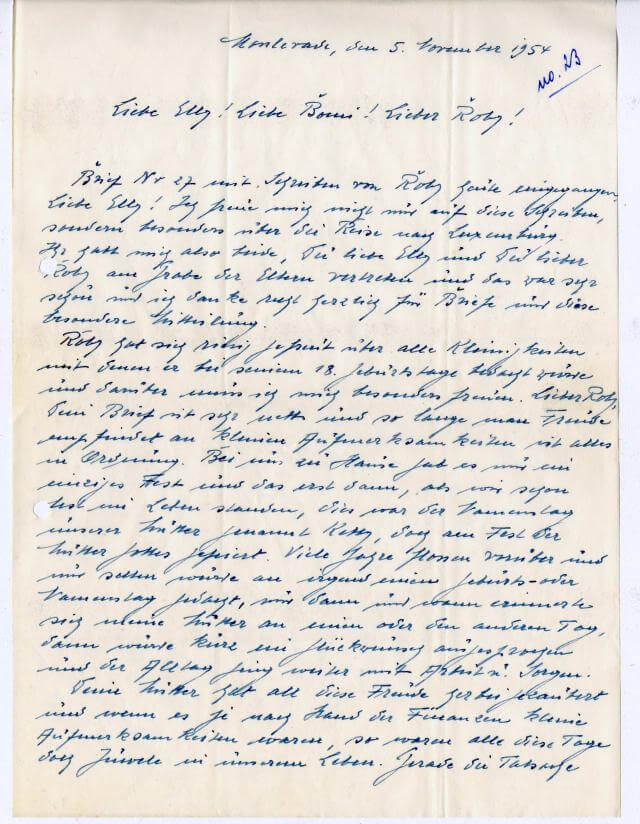 Monlevade, den 5. November 1954
no. 23
Liebe Elly! Liebe Bomi! Lieber Roby!
Brief Nr 27 mit Schreiben von Roby heute eingegangen.
Liebe Elly! Ich freue mich nicht nur auf diese Schreiben,
sondern besonders über die Reise nach Luxemburg.
Ihr habt mich also beide, Du liebe Elly und Du lieber
Roby am Grabe der Eltern vertreten und das war sehr
schön und ich danke recht herzlich für Briefe und diese
besondere Mitteilung.
Roby hat sich riesig gefreut über alle Kleinigkeiten
mit denen er bei seinem 18. Geburtstage bedacht wurde
und darüber muss ich mich besonders freuen. Lieber Roby,
Dein Brief ist sehr nett und so lange man Freude
empfindet an kleinen Aufmerksamkeiten ist alles
in Ordnung. Bei uns zu Hause gab es nur ein
einziges Fest und das erst dann, als wir schon
fest im Leben standen, dies war der Namenstag
unserer Mutter genannt Ketty, doch am Fest der
Mutter Gottes gefeiert. Viele Jahre flossen vorüber und
nur selten wurde an irgend einem Geburts- oder
Namenstag gedacht, nur dann und wann erinnerte
sich meine Mutter an einen oder den anderen Tag,
dann wurde kurz ein Glückwunsch ausgesprochen
und der Alltag ging weiter mit Arbeit u. Sorgen.
Deine Mutter hat all diese Freude herbei gezaubert
und wenn es je nach Stand der Finanzen kleine
Aufmerksamkeiten waren, so waren alle diese Tage
doch Juwele in unserem Leben. Gerade die Tatsache